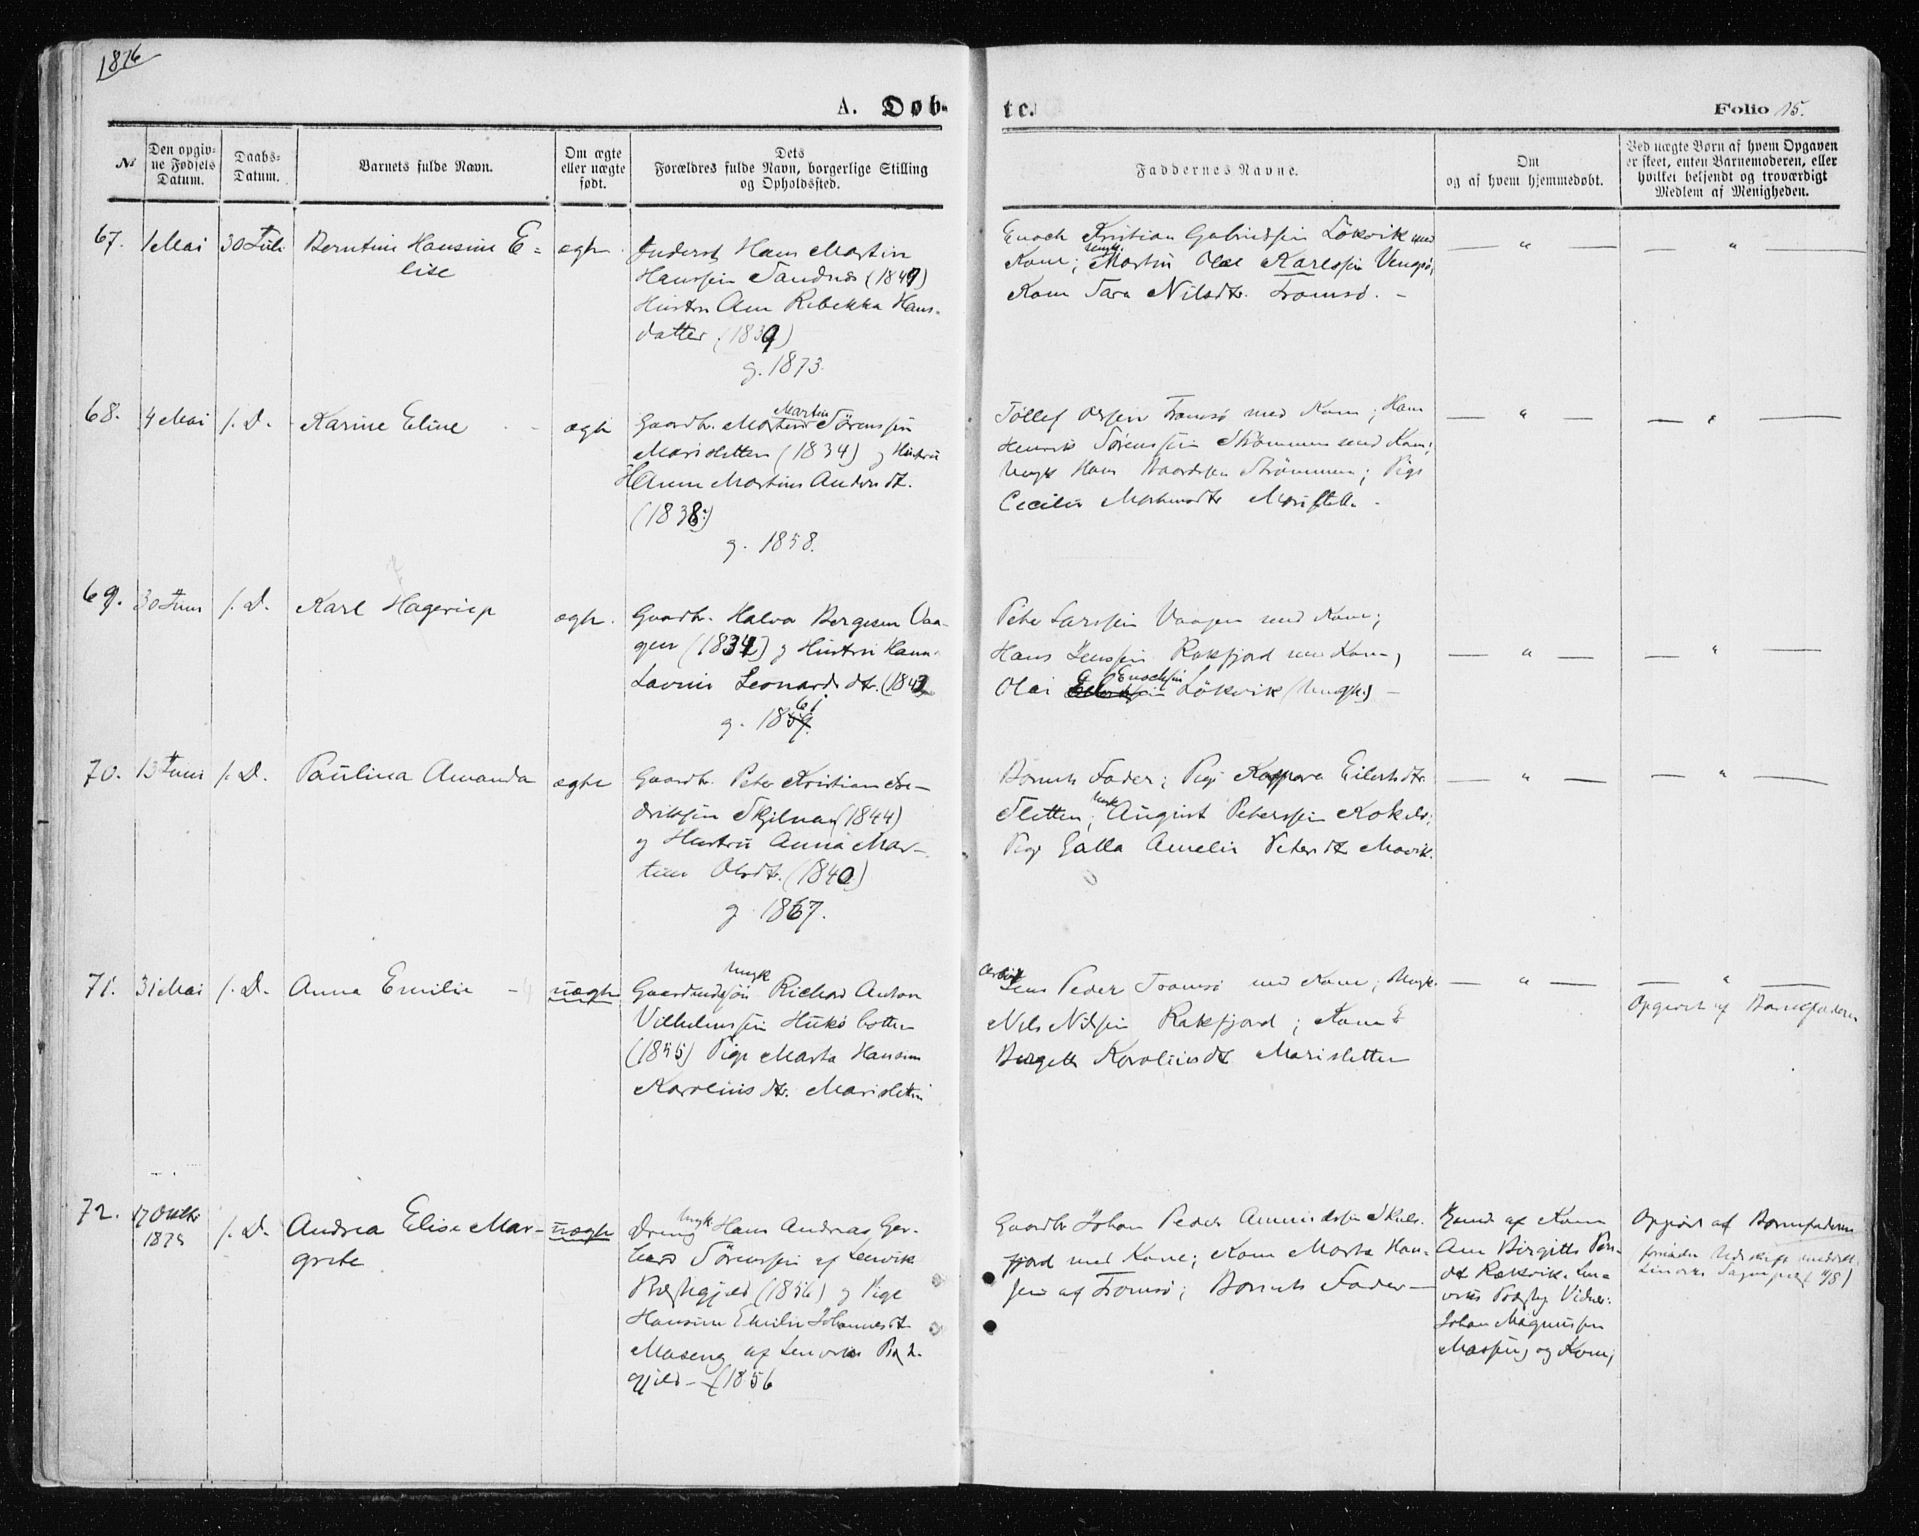 1876
A. Døb-
te.
Folio 15.
№
Den opgiv-
ne Fødsels
Datum.
Daabs-
Datum.
Barnets fulde Navn.
Om ægte
eller uægte
født.
Dets
Forældres fulde Navn, borgerlige Stilling
og Opholdssted.
Faddernes Navne.
Om
og af hvem hjemmedøbt.
Ved uægte Børn af hvem Opgaven
er skeet, enten Barnemoderen, eller
hvilket bekjendt og troværdigt
Medlem af Menigheden.
67. 1 Mai 30 Juli Berntine Hansine E-
lise
ægte
Inderst Hans Martin
Hanssen Sandnes (1849)
Hustru Ane Rebekka Hans-
datter (1839)
g. 1873.
Enoch Kristian Gabrielsen Lökvik med
Kone; Ungk. Martin Olai Karlssen Vengsö;
Kone Sara Nilsdtr. Tromsö. -
— " — — " —
68. 4 Mai s. D. Karine Eline ægte
Gaardbr. Martin Sörenssen
Marisletten (1834) g Hustru
Hanne Martine Andersdt.
(1838)
g. 1858.
Tøllef Olssen Tromsö med Kone; Hans
Henrik Sörenssen Strömmen med Kone;
Ungk Hans Baardsen Strömmen; Pige
— " — — " —
69. 30 Juni s. D. Karl Hagerup ægte.
Gaardbr. Halvor Bergesen Vaa-
gen (1834) g Hustru Hanna
Lavine Leonardsdtr. (1842)
g. 1861
Peter Larssen Vaagen med Kone;
Hans Jenssen Rakfjord med Kone,
Olai Enochsen Lökvik (Ungk.) -
— " — — " —
70. 13 Juni s. D. Paulina Amanda ægte
Gaardbr. Peter Kristian Fre-
driksen Skjelnan (1844)
g Hustru Anna Mar-
tine Olsdtr. (1840)
g. 1867.
Barnets Fader; Pige Kaspara Eilertsdtr.
Sletten; Ungk August Peterssen
Pige Galla Amelie Petersdt Movik.
— " — — " —
71. 31 Mai s. D. Anna Emilie uægte
Gaardmandssøn Ungk Richard Anton
Vilhelmssen
(1855) Pige Marta Hansine
Karoliusdtr. Marisletten
Jens Peder Tromsö med Kone; Ungk.
Nils Nilssen Rakfjord; Kone E
Karoliusdt Marisletten
— " — — " —
Opgivet af Barnefaderen
72. 17 Oktbr
1875
s. D. Andrea Elise Mar-
grete
uægte
Dreng Ungk Hans Andreas Ger-
hard Sörenssen af Lenvik
Præstegjeld (1856) g Pige
Hansine Emilie Johannesdt
Maseng af Lenviks Præste-
gjeld - (1856
Gaardbr Johan Peder
fjord med Kone; Kone Marta Han-
sen af Tromsö; Barnets Fader —
af Kone
Ane Birgitte
Johan Magnussen
og Kone;
Opgivet af Barnefaderen